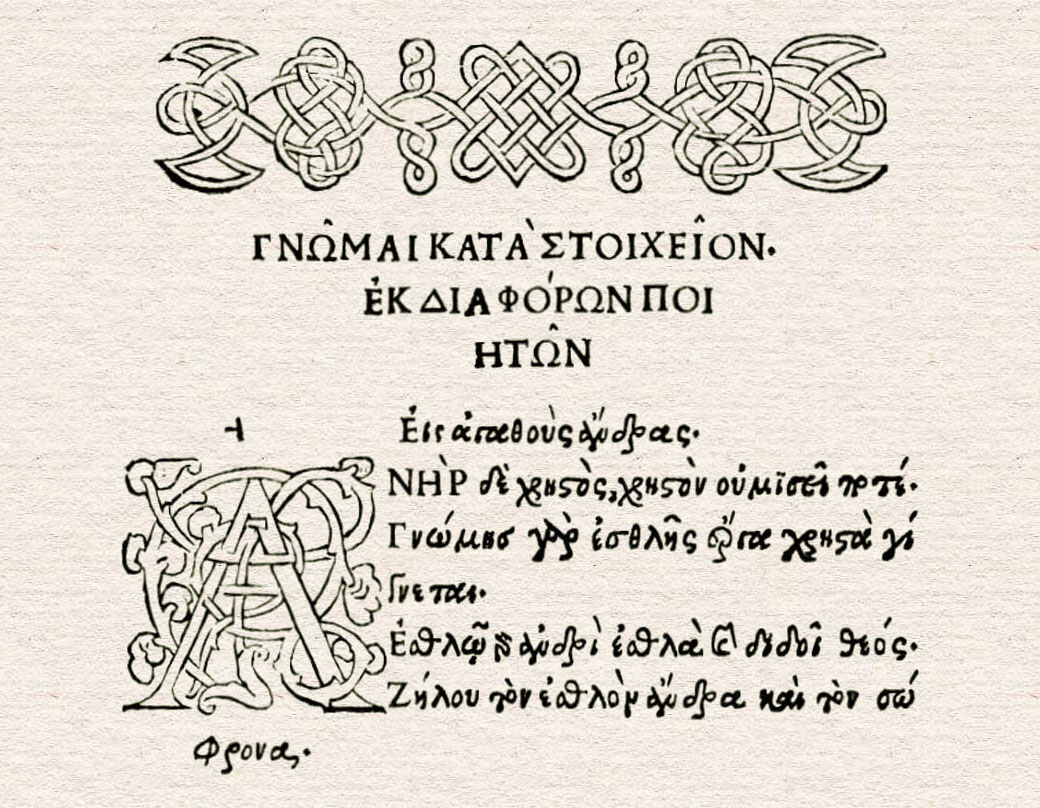 ΓΝΩ͂ΜΑΙ ΚΑΤᾺ ΣΤΟΙΧΕΙ͂ΟΝ.
ἘΚ ΔΙΑΦΌΡΩΝ ΠΟΙ
ΗΤΩ͂Ν
Εἰς ἀγαθοὺς ἄνδρας.
ΑΝῊΡ δὲ χρηστὸς, χρηστὸν οὐ μισεῖ ποτέ.
Γνώμησ γὰρ ἐσθλῆς ἔργα χρηστὰ γί
γνεται.
Ἐσθλῷ γὰρ ἀνδρὶ ἐσθλὰ καὶ διδοῖ θεός.
Ζήλου τὸν ἐσθλὸν ἄνδρα καὶ τὸν σώ
φρονα.